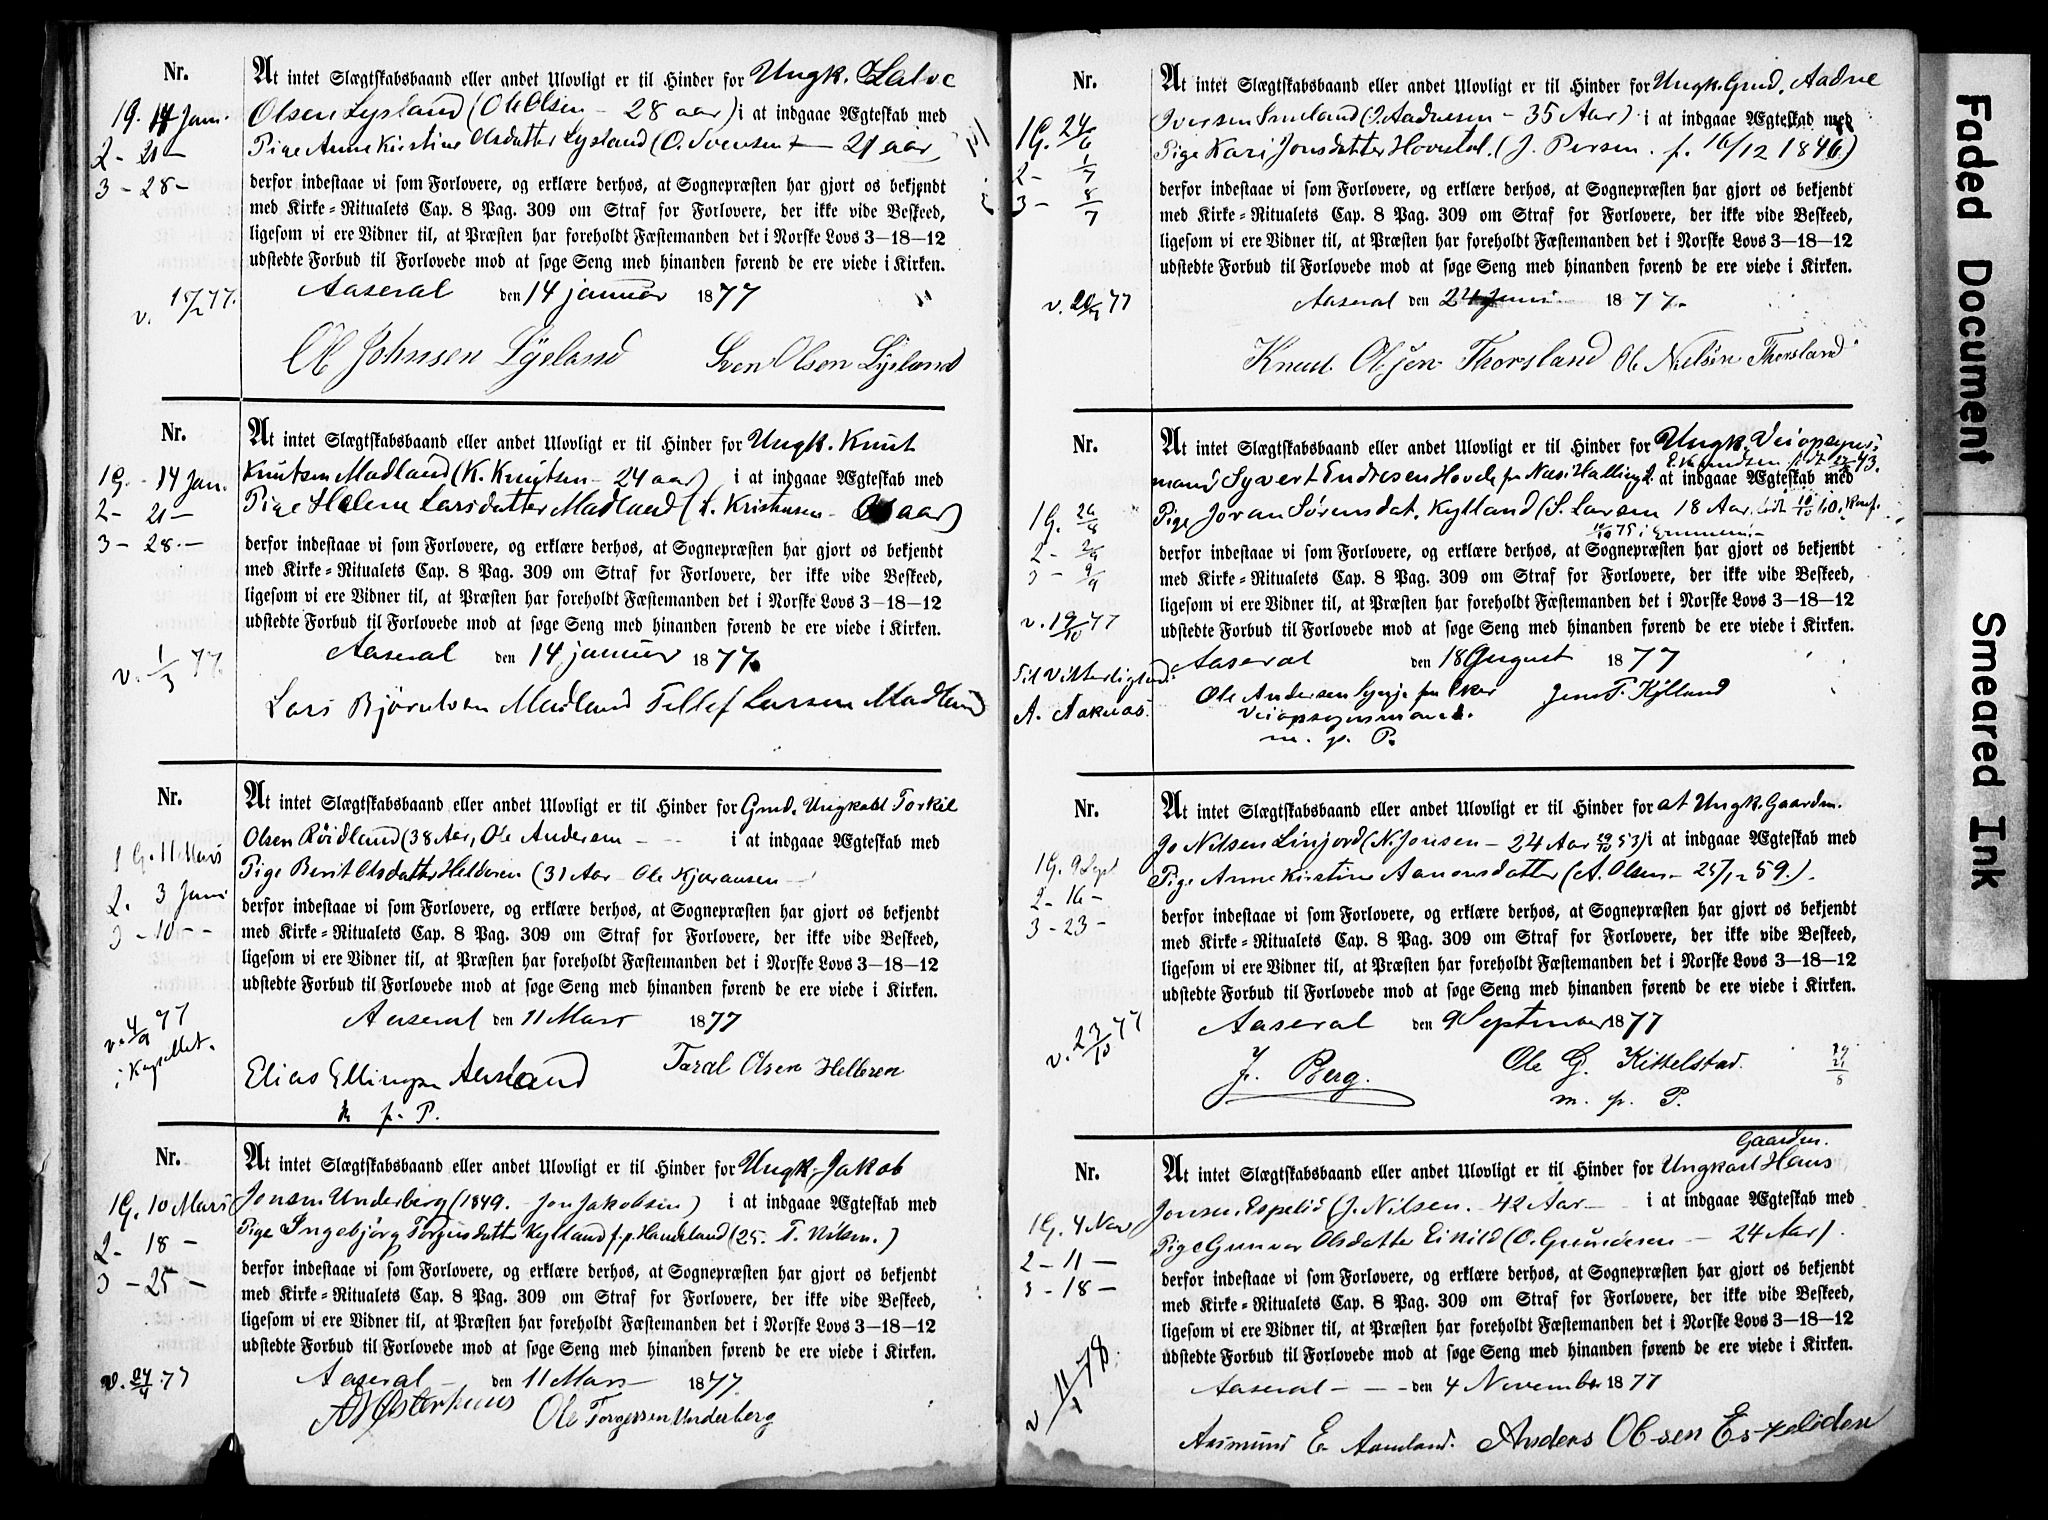 Nr.
At intet Slægtskabsbaand eller andet Ulovligt er til Hinder for Ungk. Salve
1 G. 14 Jan. Olsen Lysland (Ole Olsen - 28 aar) i at indgaae Ægteskab med
2 - 21 - Pige Anne Kirstine Olsdatter Lysland (O. Svensen - 21 aar)
3 - 28 - derfor indestaae vi som Forlovere, og erklære derhos, at Sognepræsten har gjort os bekjendt
med Kirke-Ritualets Cap. 8 Pag. 309 om Straf for Forlovere, der ikke vide Beskeed,
ligesom vi ere Vidner til, at Præsten har foreholdt Fæstemanden det i Norske Lovs 3-18-12
udstedte Forbud til Forlovede mod at søge Seng med hinanden førend de ere viede i Kirken.
v. 15/2 77. Aaseral den 14 januar 1877
Ole Johnsen Lysland Sven Olsen Lysland
Nr.
At intet Slægtskabsbaand eller andet Ulovligt er til Hinder for Ungk. Knut
1 G. - 14 Jan. Knutsen Madland (K. Knutsen - 24 aar) i at indgaae Ægteskab med
2 - 21 - Pige Helene Larsdatter Madland (L. Kristensen - aar)
3 - 28 - derfor indestaae vi som Forlovere, og erklære derhos, at Sognepræsten har gjort os bekjendt
med Kirke-Ritualets Cap. 8 Pag. 309 om Straf for Forlovere, der ikke vide Beskeed,
ligesom vi ere Vidner til, at Præsten har foreholdt Fæstemanden det i Norske Lovs 3-18-12
udstedte Forbud til Forlovede mod at søge Seng med hinanden førend de ere viede i Kirken.
v. 1/3 77. Aaseral den 14 januar 1877.
Lars Bjørulvsen Madland Tellef Larsen Madland
Nr.
At intet Slægtskabsbaand eller andet Ulovligt er til Hinder for Gmd. Ungkarl Torkil
1 G. 11 Mars Olsen Røidland (38 Aar, Ole Andersen - - - i at indgaae Ægteskab med
2. 3 Juni Pige Berit Olsdatter Helleren (31 Aar - Ole Kjøransen -
3 - 10 - - derfor indestaae vi som Forlovere, og erklære derhos, at Sognepræsten har gjort os bekjendt
med Kirke-Ritualets Cap. 8 Pag. 309 om Straf for Forlovere, der ikke vide Beskeed,
ligesom vi ere Vidner til, at Præsten har foreholdt Fæstemanden det i Norske Lovs 3-18-12
udstedte Forbud til Forlovede mod at søge Seng med hinanden førend de ere viede i Kirken.
v. 4/9 77 Aaseral den 11 Mars 1877
i Kapellet. Elias Ellingsen Aasland Taral Olsen Helleren
m. p. P.
Nr.
At intet Slægtskabsbaand eller andet Ulovligt er til Hinder for Ungk. Jakob
1 G. 10 Mars Jonsen Underberg (1849. - Jon Jakobsen) i at indgaae Ægteskab med
2 - 18 - Pige Ingebjørg Torgusdatter Kylland f. p. (25. T. Nilsen.)
3 - 25 - derfor indestaae vi som Forlovere, og erklære derhos, at Sognepræsten har gjort os bekjendt
med Kirke-Ritualets Cap. 8 Pag. 309 om Straf for Forlovere, der ikke vide Beskeed,
ligesom vi ere Vidner til, at Præsten har foreholdt Fæstemanden det i Norske Lovs 3-18-12
udstedte Forbud til Forlovede mod at søge Seng med hinanden førend de ere viede i Kirken.
v. 24/4 77 Aaseral - den 11 Mars - 1877.
Østerhuus Ole Torgessen Underberg
Nr.
At intet Slægtskabsbaand eller andet Ulovligt er til Hinder for Ungk. Gmd. Aadne
1 G. 24/6 Iversen Smeland (I. Aadnesen - 35 Aar) i at indgaae Ægteskab med
2 - 1/7 Pige Kari Jonsdatter Hovstøl. (J. Persen. f. 16/12 1846)
3 - 8/7 derfor indestaae vi som Forlovere, og erklære derhos, at Sognepræsten har gjort os bekjendt
med Kirke-Ritualets Cap. 8 Pag. 309 om Straf for Forlovere, der ikke vide Beskeed,
ligesom vi ere Vidner til, at Præsten har foreholdt Fæstemanden det i Norske Lovs 3-18-12
udstedte Forbud til Forlovede mod at søge Seng med hinanden førend de ere viede i Kirken.
Aaseral den 24 Juni 1877.
Knud Olsen Thorsland Ole Nielsen Thorsland
Nr.
At intet Slægtskabsbaand eller andet Ulovligt er til Hinder for Ungk. Veiopsyns-
mand Syvert Endresen Hovde fra Næs i Hallingd. i at indgaae Ægteskab med
1 G. 26/8 Pige Joran Sørensdat. Kylland (S. Larsen 18 Aar. født 10/10 60, konf.
2 - 2/9 derfor indestaae vi som Forlovere, og erklære derhos, at Sognepræsten har gjort os bekjendt
3 - 9/9 med Kirke-Ritualets Cap. 8 Pag. 309 om Straf for Forlovere, der ikke vide Beskeed,
ligesom vi ere Vidner til, at Præsten har foreholdt Fæstemanden det i Norske Lovs 3-18-12
v. 19/10 77 udstedte Forbud til Forlovede mod at søge Seng med hinanden førend de ere viede i Kirken.
Til Vitterlighed: Aaseral den 18 August 1877
A. Aaknes. Ole Andersen fra Jens T. Kylland
Veiopsynsmand.
m. p. P.
Nr.
At intet Slægtskabsbaand eller andet Ulovligt er til Hinder for at Ungk. Gaardm.
Jo Nilsen Linjord (N. Jonsen - 24 Aar 29/10 53) i at indgaae Ægteskab med
1 G. 9 Sept Pige Anne Kirstine Aanonsdatter (A. Olsen - 25/12 59.)
2 - 16 - derfor indestaae vi som Forlovere, og erklære derhos, at Sognepræsten har gjort os bekjendt
3 - 23 - med Kirke-Ritualets Cap. 8 Pag. 309 om Straf for Forlovere, der ikke vide Beskeed,
ligesom vi ere Vidner til, at Præsten har foreholdt Fæstemanden det i Norske Lovs 3-18-12
udstedte Forbud til Forlovede mod at søge Seng med hinanden førend de ere viede i Kirken.
v. 23/10 77 Aaseral den 9 September 1877
J. Berg. Ole G. Kittelstad.
m. p. P.
Gaardm.
Nr.
At intet Slægtskabsbaand eller andet Ulovligt er til Hinder for Ungkarl Hans
1 G. 4 Nov Jonsen Espelid (J. Nilsen. - 42 Aar - i at indgaae Ægteskab med
2 - 11 - Pige Gunvor Olsdatter Eikild (O. Gundersen - 24 Aar).
3 - 18 - derfor indestaae vi som Forlovere, og erklære derhos, at Sognepræsten har gjort os bekjendt
med Kirke-Ritualets Cap. 8 Pag. 309 om Straf for Forlovere, der ikke vide Beskeed,
ligesom vi ere Vidner til, at Præsten har foreholdt Fæstemanden det i Norske Lovs 3-18-12
udstedte Forbud til Forlovede mod at søge Seng med hinanden førend de ere viede i Kirken.
v 11/1 78. Aaseral - - - den 4 November 1877
Aasmund E. Aamland. Anders Olsen Espeliden
Faded Document
Smeared Ink